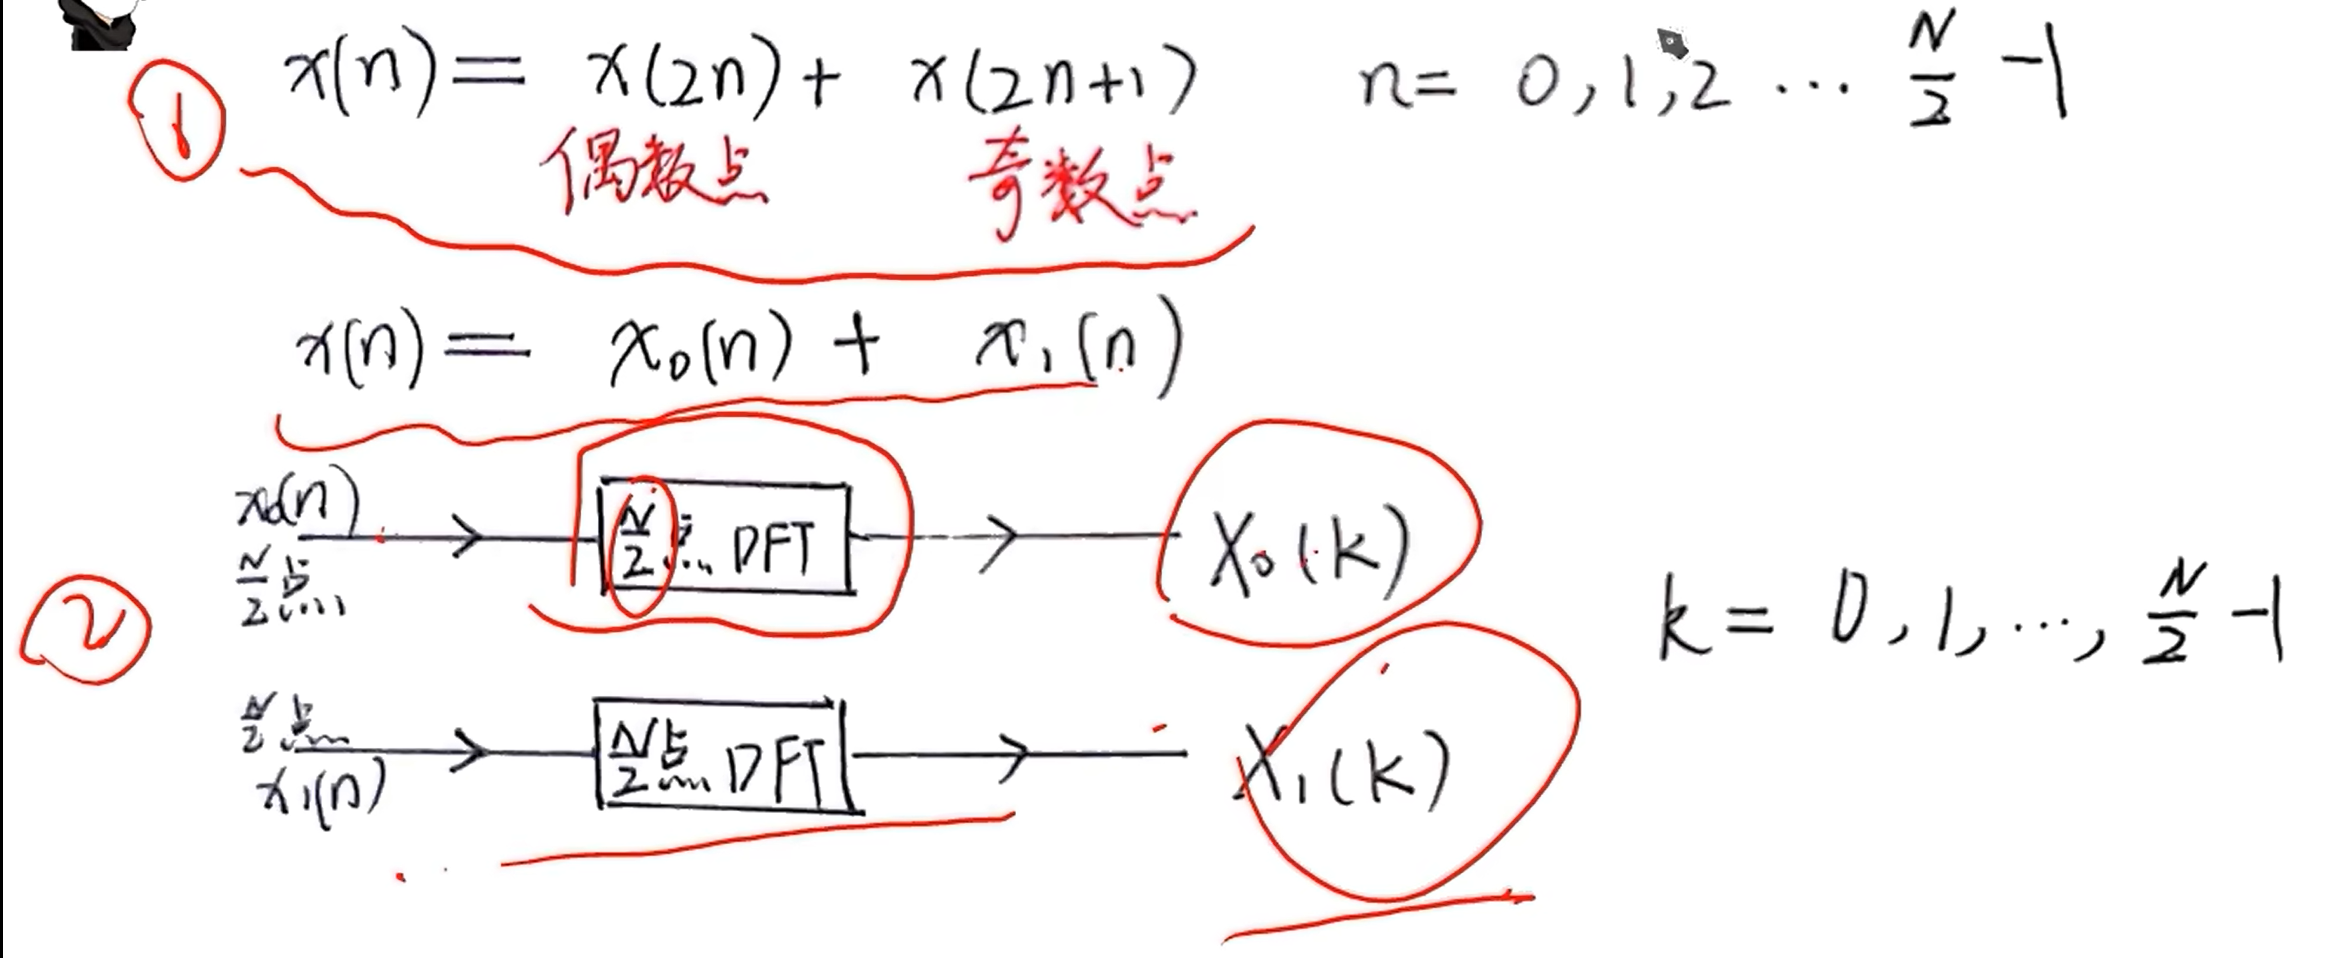 ① x(n) = x(2n) + x(2n+1) n = 0, 1, 2 ... N/2 -1
偶数点 奇数点
x(n) = x₀(n) + x₁(n)
②
x₀(n) N/2点 N/2点 DFT X₀(k)
k = 0, 1, ..., N/2 -1
N/2点 x₁(n) N/2点 DFT X₁(k)